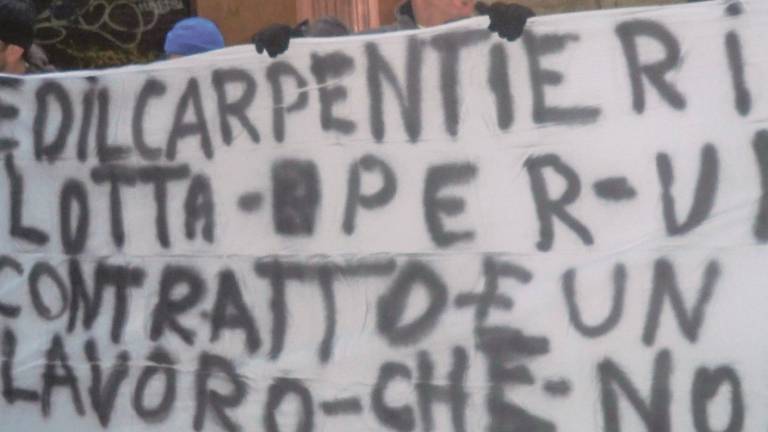 EDILCARPENTIERI
LOTTA - PER-U
CONTRATTO-E UN
LAVORO-CHE-NO